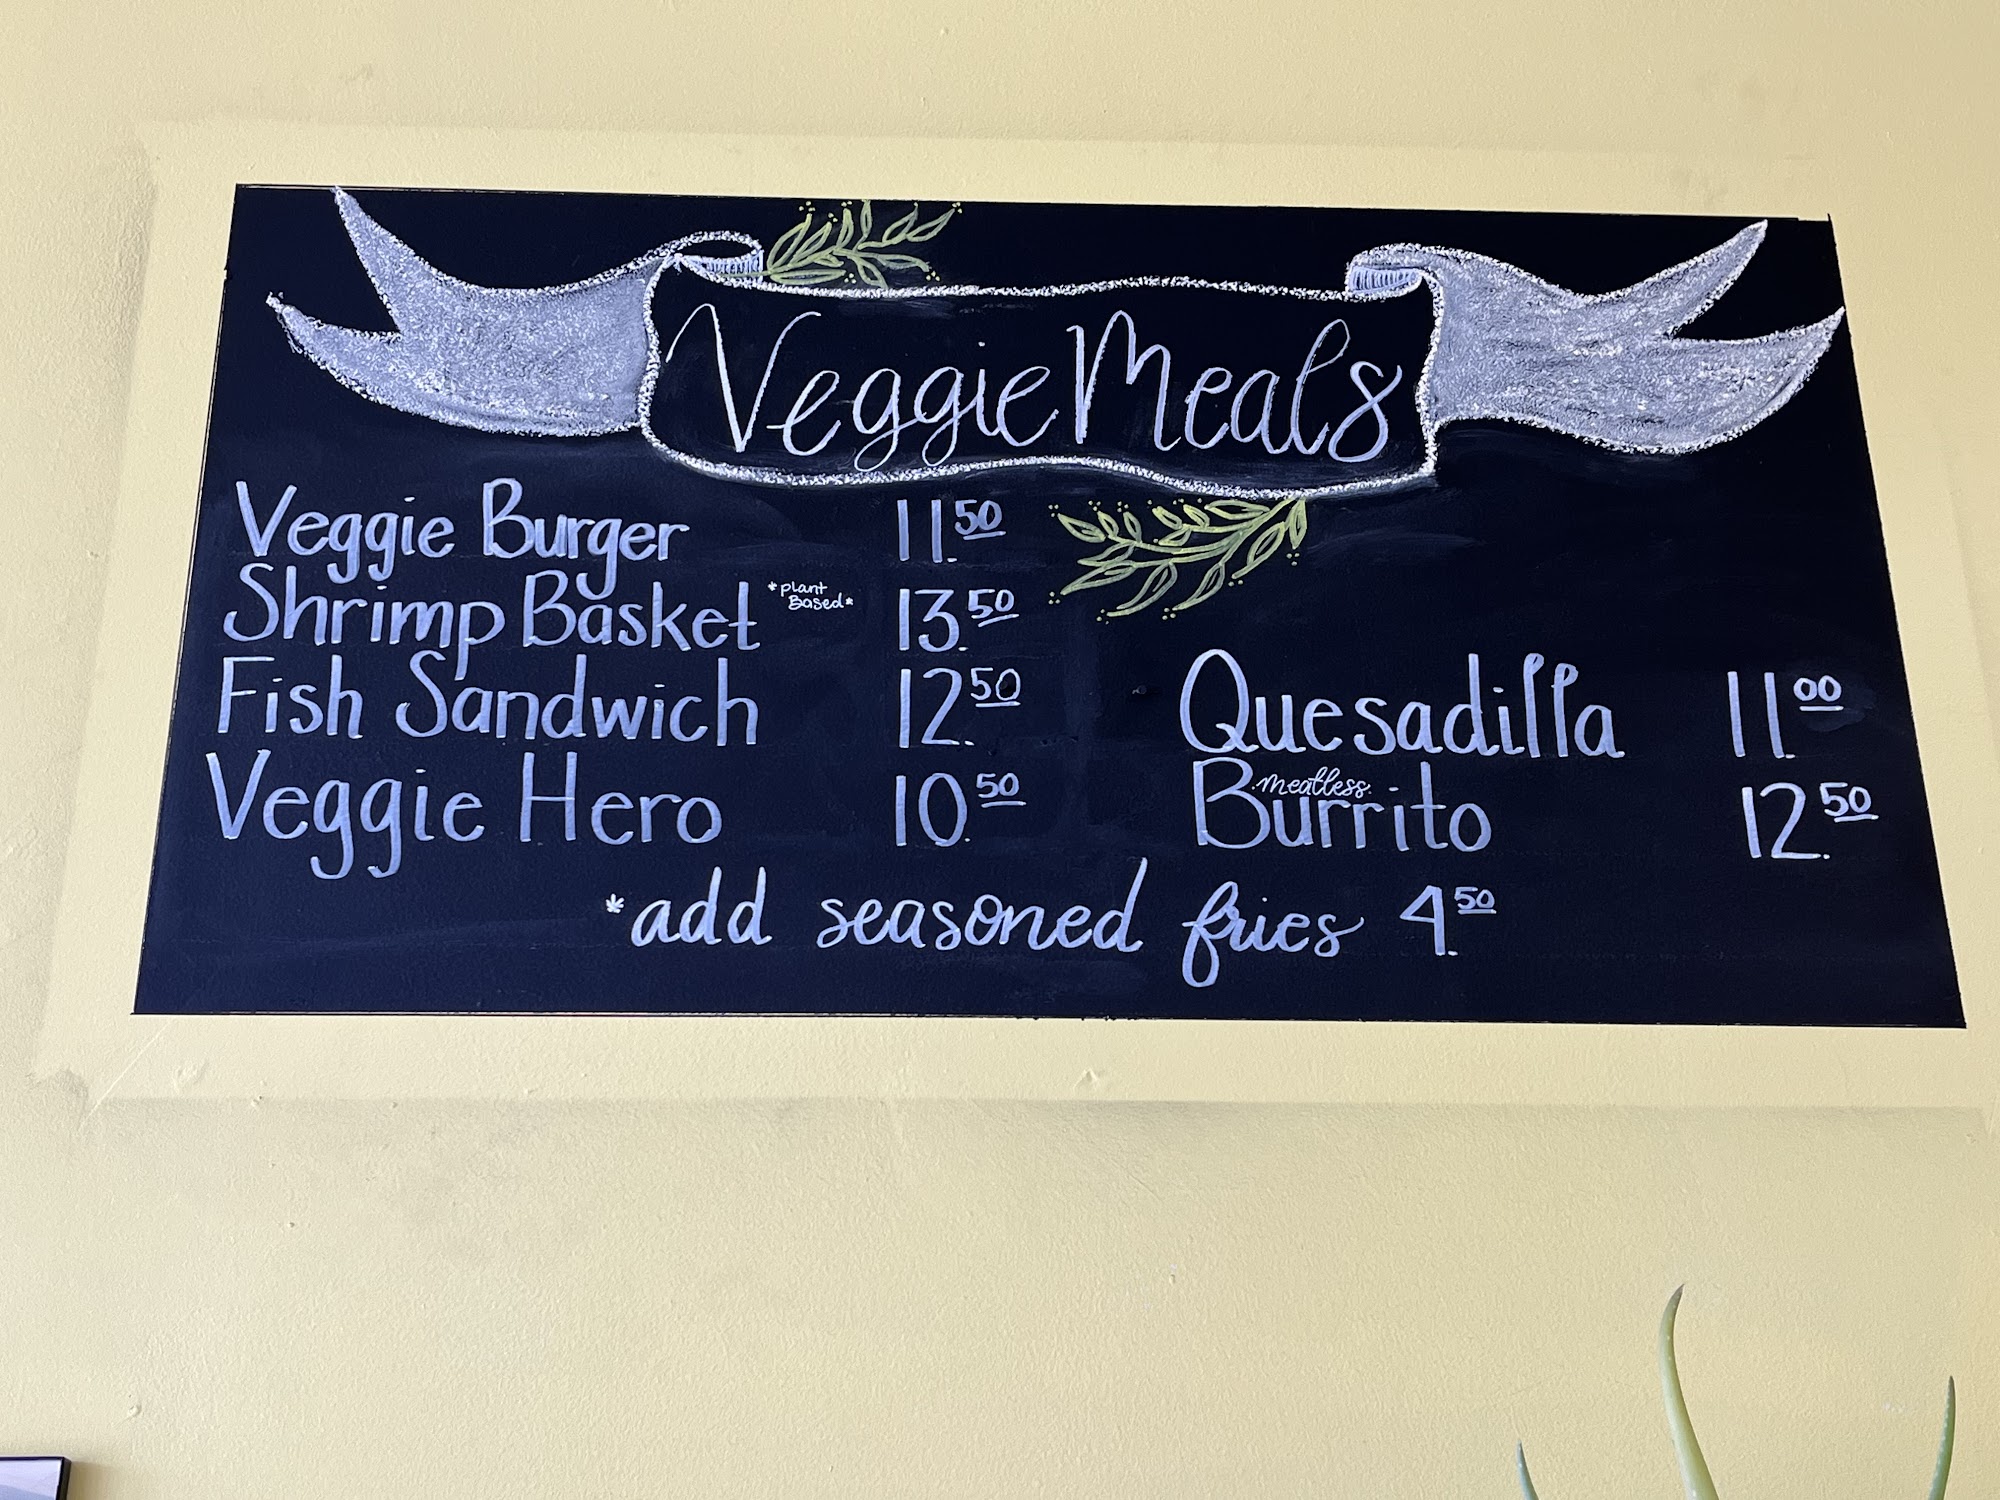 Veggie Meals
Veggie Burger 11.50
Shrimp Basket *plant Based* 13.50
Fish Sandwich 12.50
Veggie Hero 10.50
Quesadilla 11.00
meatless
Burrito 12.50
*add seasoned fries 4.50